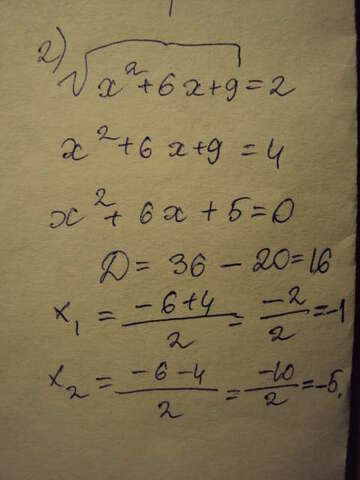 2) √x²+6x+9=2
x²+6x+9=4
x²+6x+5=0
D=36-20=16
x₁=(-6+4)/2=-2/2=-1
x₂=(-6-4)/2=-10/2=-5.